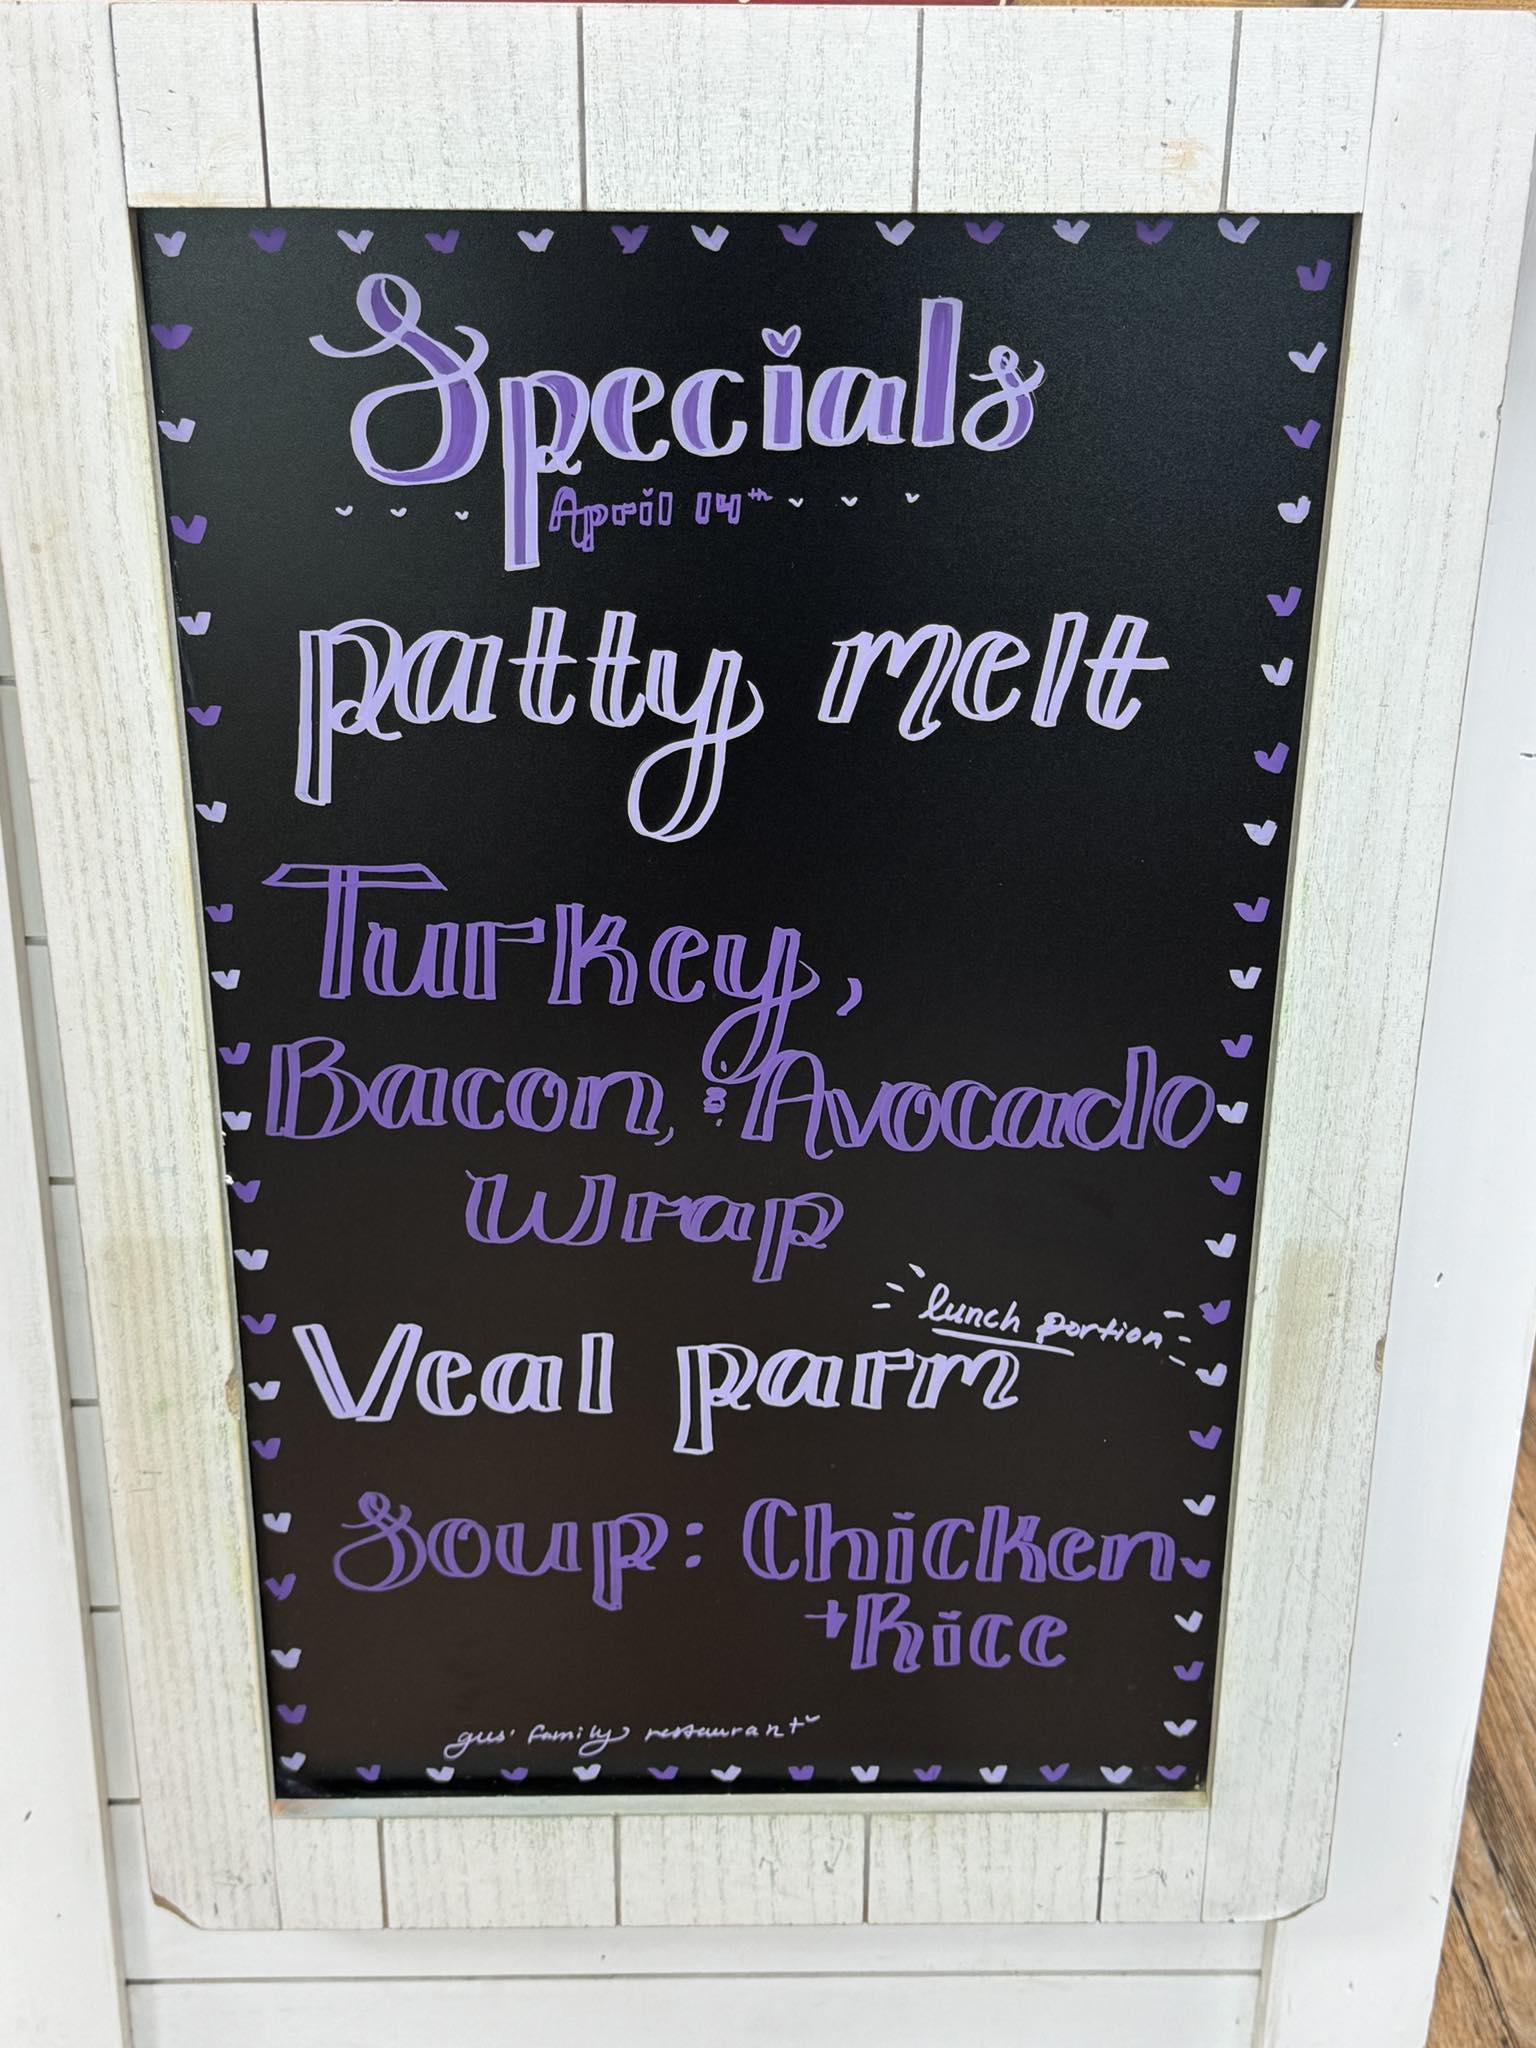 Specials
April 14th
patty melt
Turkey,
Bacon, & Avocado
Wrap
lunch portion
Veal parm
Soup: Chicken
+ Rice
gus' family restaurant